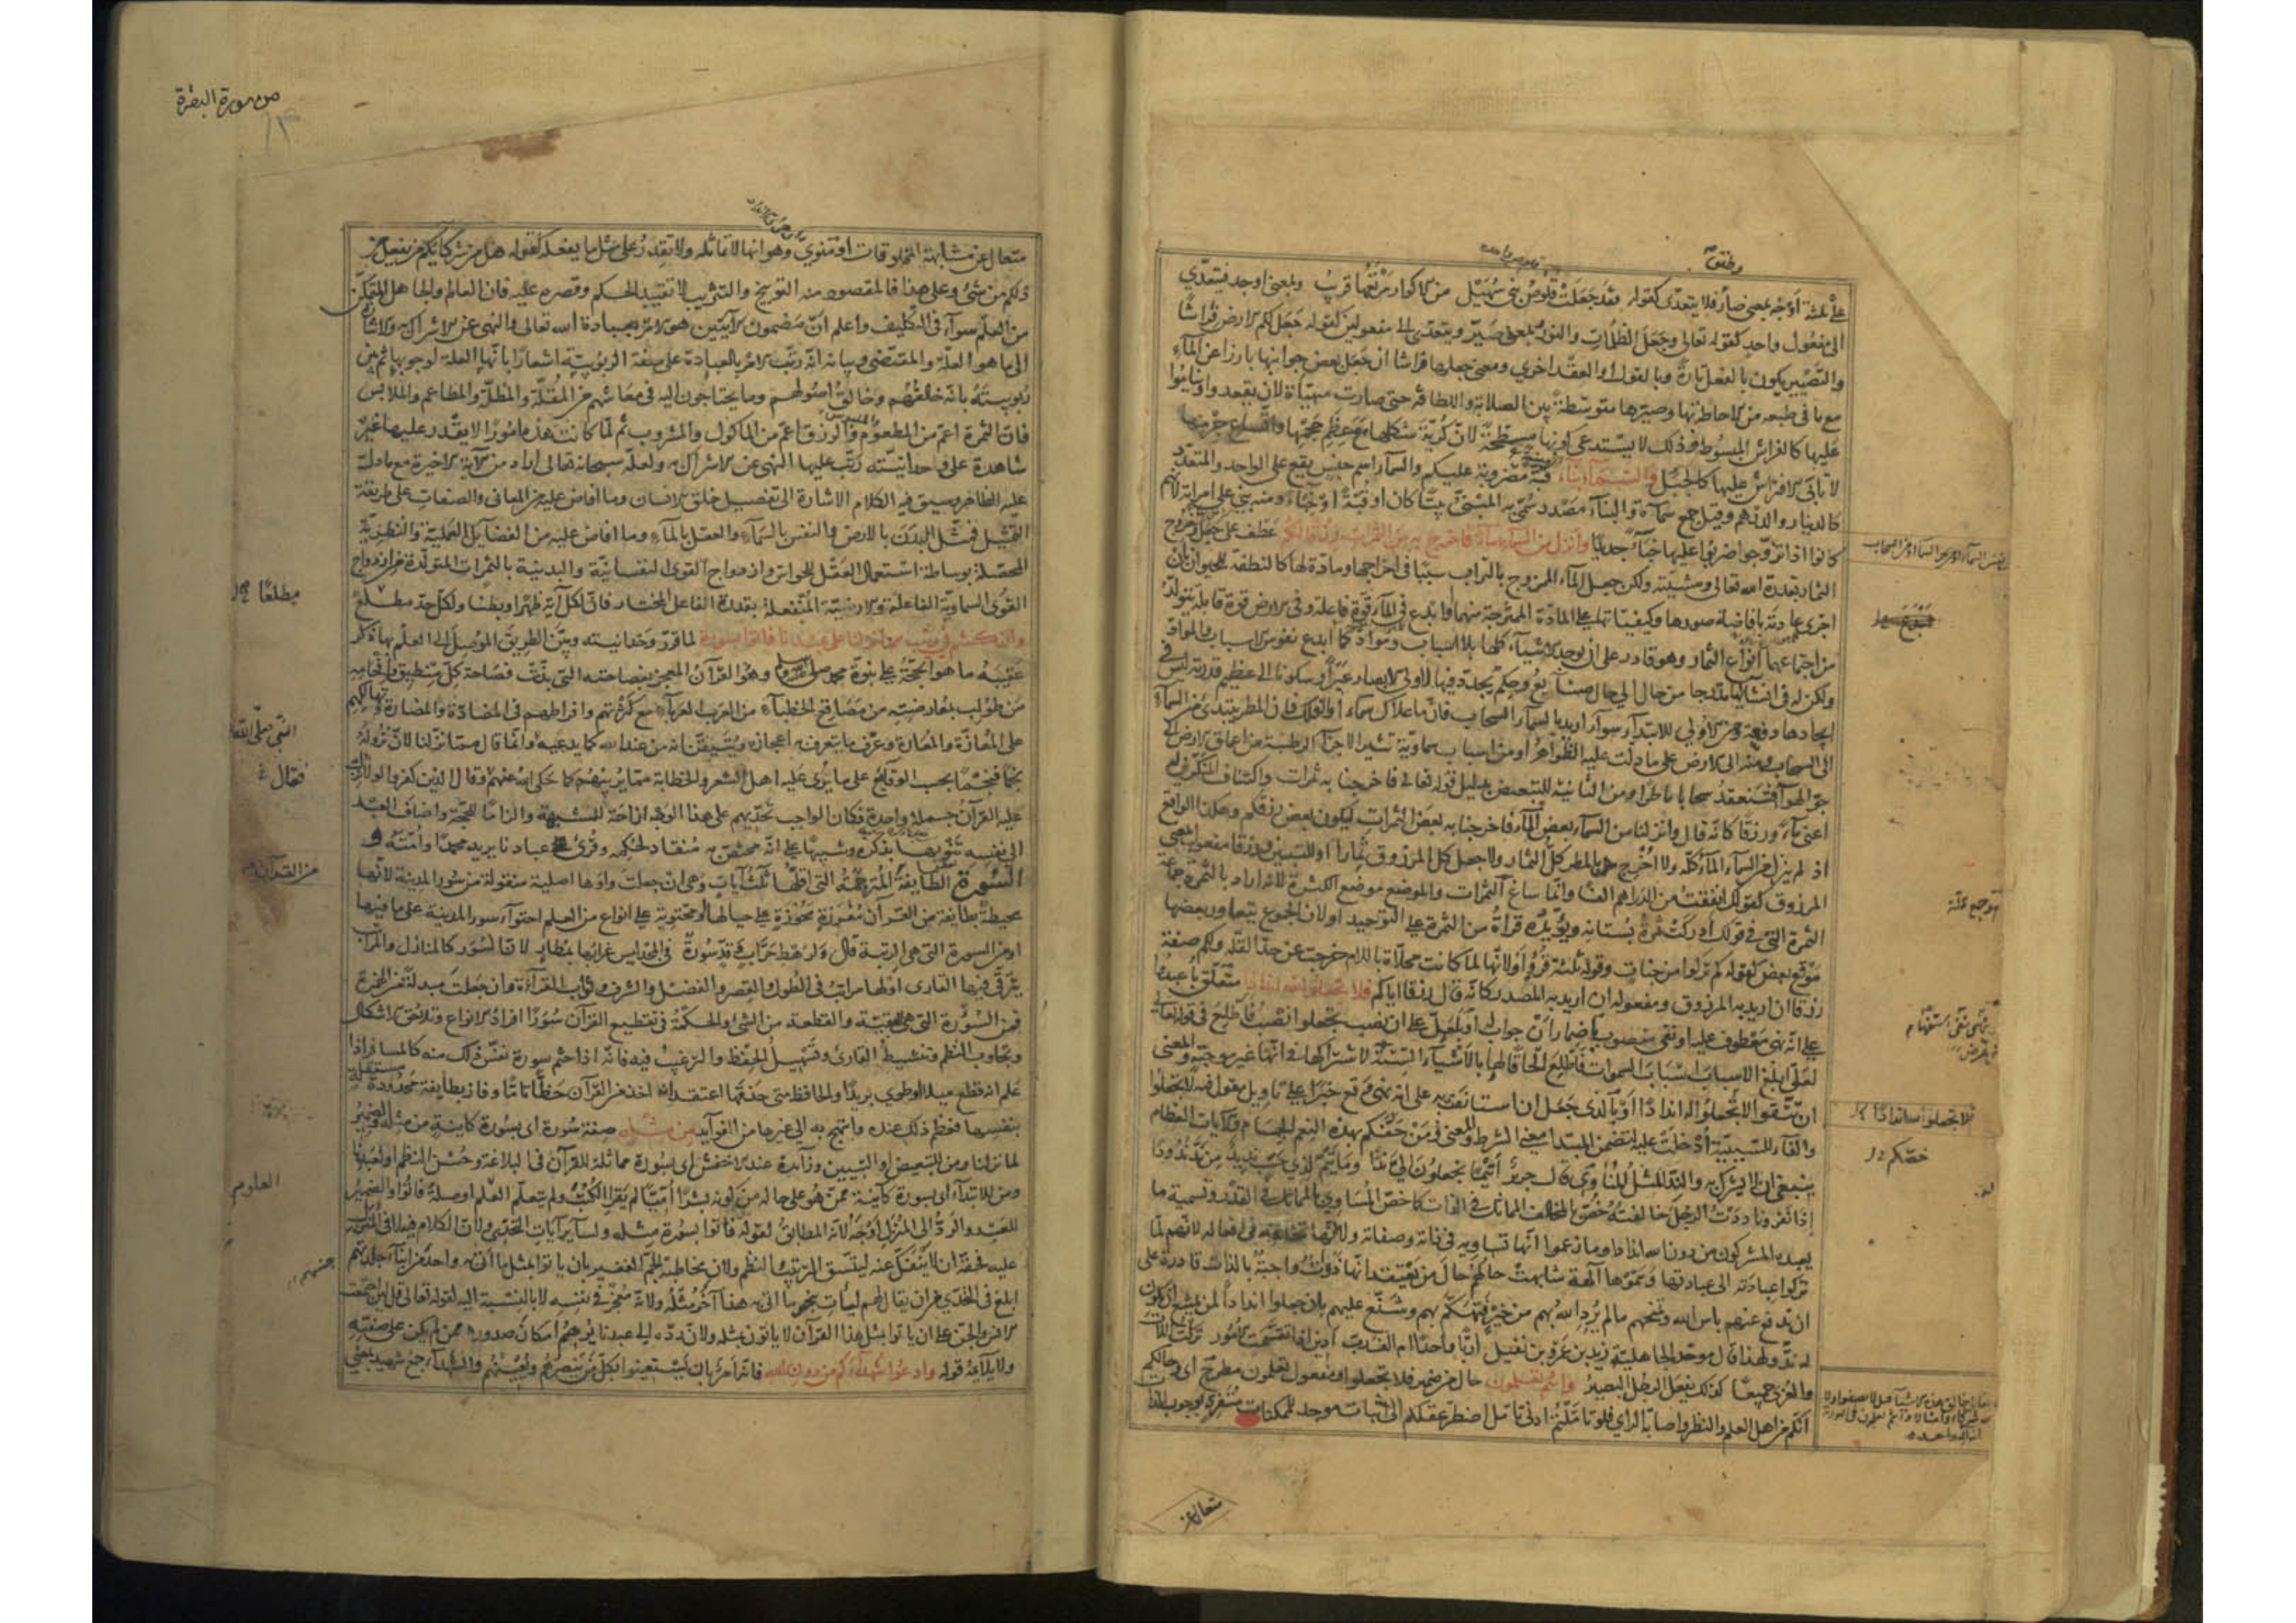 وطفق
على ثلثة اوجه بمعنى صار فلا يتعدى كقوله فقد جعلت قلوص بني سهيل من الاكوار مرتعها قريب وبمعنى اوجد فتعدى
الى مفعول واحد كقوله تعالى وجعل الظلمات والنور وبمعنى صير ويتعدى الى مفعولين كقوله جعل لكم الارض فراشا
والتصيير يكون بالفعل تارة وبالقول او العقد اخرى ومعنى جعلها فراشا ان جعل بعض جوانبها بارزا عن الماء
مع ما في طبعه من الاحاطة بها وصيرها متوسطة بين الصلابة واللطافة حتى صارت مهيأة لان يقعدوا ويناموا
عليها كالفراش المبسوط وذلك لا يستدعي كونها مسطحة لان كرية شكلها مع عظم حجمها واتساع جرمها
لا تأبى الافتراش عليها كالجبل والسماء بناء قبة مضروبة عليكم والسماء اسم جنس يقع على الواحد والمتعدد
كالدينار والدرهم وقيل جمع سماة والبناء مصدر سمي به المبني بيتا كان او قبة او خباء ومنه بنى على امرأته لانهم
كانوا اذا تزوجوا ضربوا عليها خباء جديدا وانزل من السماء ماء فاخرج به من الثمرات رزقا لكم عطف على جعل وخروج
الثمار بقدرة الله تعالى ومشيته ولكن جعل الماء الممزوج بالتراب سببا في اخراجها ومادة لها كالنطفة للحيوان بان
اجرى عادته بافاضة صورها وكيفياتها على المادة الممتزجة منهما او ابدع في الماء قوة فاعلة وفي الارض قوة قابلة يتولد
من اجتماعهما انواع الثمار وهو قادر على ان يوجد الاشياء كلها بلا اسباب ومواد كما ابدع نفوس الاسباب والمواد
ولكن له في انشائها مدرجا من حال الى حال صنائع وحكم يجدد فيها لاولى الابصار عبرا وسكونا الى عظيم قدرته ليس في
ايجادها دفعة ومن الاولى للابتداء سواء اريد بالسماء السحاب فان ما علاك سماء او الفلك فان المطر يبتدئ من السماء
الى السحاب ومنه الى الارض على ما دلت عليه الظواهر او من اسباب سماوية تثير الاجزاء الرطبة من اعماق الارض الى
جو الهواء فتنعقد سحابا ماطرا ومن الثانية للتبعيض بدليل قوله تعالى فاخرجنا به ثمرات واكتناف المنكرين له
اعني ماء ورزقا كانه قال وانزلنا من السماء بعض الماء فاخرجنا به بعض الثمرات ليكون بعض رزقكم وهكذا الواقع
اذ لم ينزل من السماء الماء كله ولا اخرج بالمطر كل الثمار ولا جعل كل المرزوق ثمارا او للتبيين ورزقا مفعول بمعنى
المرزوق كقولك انفقت من الدراهم الفا وانما ساغ الثمرات والموضع موضع الكثرة لانه اراد بالثمرة جماعة
الثمرة التي في قولك ادركت ثمرة بستانه ويؤيده قراءة من الثمرة على التوحيد او لان الجموع يتعاور بعضها
موقع بعض كقوله كم تركوا من جنات وقوله ثلثة قروء او لانها لما كانت محلاة باللام خرجت عن حد القلة ولكم صفة
رزقا ان اريد به المرزوق ومفعوله ان اريد به المصدر كانه قال رزقا اياكم فلا تجعلوا لله اندادا متعلق باعبدوا
على انه نهي معطوف عليه او نفي منصوب باضمار ان جواب له او بلعل على ان نصب تجعلوا نصب فاطلع في قوله تعالى
لعلي ابلغ الاسباب اسباب السموات فاطلع الحاقا لها بالاشياء الستة لاشتراكها في انها غير موجبة والمعنى
ان تتقوا لا تجعلوا له اندادا او بالذي جعل ان استأنفت به على انه نهي وقع خبرا على تأويل مقول فيه لا تجعلوا
والفاء للسببية ادخلت عليه لتضمن المبتدا معنى الشرط والمعنى من حفكم بهذه النعم الجسام والايات العظام
ينبغي ان لا يشرك به والند المثل المناوى قال جرير أتيما تجعلون الى ندا وما تيم لذي حسب نديد من ند ندودا
اذا نفر وناددت الرجل خالفته خص بالمخالف المماثل في الذات كما خص المساوي للمماثل في القدر وتسمية ما
يعبده المشركون من دون الله اندادا وما زعموا انها تساويه في ذاته وصفاته ولا انها تخالفه في افعاله لانهم لما
تركوا عبادته الى عبادتها وسموها آلهة شابهت حالهم حال من يعتقد انها ذوات واجبة بالذات قادرة على
ان تدفع عنهم باس الله وتمنحهم ما لم يرد الله بهم من خير فتهكم بهم وشنع عليهم بان جعلوا اندادا لمن يمتنع ان يكون
له ند ولهذا قال موحد الجاهلية زيد بن عمرو بن نفيل أربا واحدا ام الف رب ادين اذا تقسمت الامور تركت اللات
والعزى جميعا كذلك يفعل الرجل البصير وانتم تعلمون حال من ضمير فلا تجعلوا ومفعول تعلمون مطرح اي وحالكم
انكم من اهل العلم والنظر واصابة الراي فلو تاملتم ادنى تامل اضطر عقلكم الى اثبات موجد للممكنات متفرد بوجوب الذات
توجع علة
فلا تجعلوا لله اندادا
خصكم
متعال عن
من سورة البقرة
١٣
متعال عن مشابهة المخلوقات او تنوي وهو انها لا تماثله ولا تقدر على مثل ما يفعله كقوله هل من شركائكم من يفعل من
ذلكم من شئ وعلى هذا فالمقصود منه التوبيخ والتثريب لا تقييد الحكم وقصره عليه فان العالم والجاهل المتمكن
من العلم سواء في التكليف واعلم ان مضمون الآيتين هو الامر بعبادة الله تعالى والنهي عن الاشراك به والاشارة
الى ما هو العلة والمقتضى وبيانه انه رتب الامر بالعبادة على صفة الربوبية اشعارا بانها العلة لوجوبها ثم بين
ربوبيته بانه خالقهم وخالق اصولهم وما يحتاجون اليه في معاشهم من المقلة والمظلة والمطاعم والملابس
فان الثمرة اعم من المطعوم والرزق اعم من الماكول والمشروب ثم لما كانت هذه امورا لا يقدر عليها غيره
شاهدة على وحدانيته رتب عليها النهي عن الاشراك به ولعله سبحانه تعالى اراد من الآية الاخيرة مع ما دل
عليه الظاهر وسيق فيه الكلام الاشارة الى تفصيل خلق الانسان وما افاض عليه من المعاني والصفات على طريقة
التمثيل فمثل البدن بالارض والنفس بالسماء والعقل بالماء وما افاض عليه من الفضايل العملية والنظرية
المحصلة بوساطة استعمال العقل للحواس وازدواج القوى النفسانية والبدنية بالثمرات المتولدة من ازدواج
القوى السماوية الفاعلة والارضية المنفعلة بقدرة الفاعل المختار فان لكل آية ظهرا وبطنا ولكل حد مطلع
وان كنتم في ريب مما نزلنا على عبدنا فاتوا بسورة لما قرر وحدانيته وبين الطريق الموصل الى العلم بها ذكر
عقيبه ما هو الحجة على نبوة محمد صلى الله عليه وسلم وهو القرآن المعجز بفصاحته التي بذت فصاحة كل منطيق وافحامه
من طولب بمعارضته من مصاقع الخطباء من العرب العرباء مع كثرتهم وافراطهم في المضادة والمضارة وتهالكهم
على المعازة والمعارة وعرف ما يتعرف به اعجازه ويتيقن انه من عند الله كما يدعيه وانما قال مما نزلنا لان نزوله
نجما فنجما بحسب الوقايع على ما نرى عليه اهل الشعر والخطابة مما يريبهم كما حكى الله عنهم وقال الذين كفروا لولا نزل
عليه القرآن جملة واحدة فكان الواجب تحديهم على هذا الوجه ازاحة للشبهة والزاما للحجة واضاف العبد
الى نفسه تنويها بذكره وتنبيها على انه مختص به منقاد لحكمه وقرئ عبادنا يريد محمدا وامته و
السورة الطايفة المترجمة التي اقلها ثلث آيات وهي ان جعلت واوها اصلية منقولة من سور المدينة لانها
محيطة بطايفة من القرآن مفرزة محوزة على حيالها او محتوية على انواع من العلم احتواء سور المدينة على ما فيها
او من السورة التي هي الرتبة قال ولرهط حراب وقد سورة في المجد ليس غرابها بمطار لان السور كالمنازل والمراتب
يترقى فيها القارى او لها مراتب في الطول والقصر والفضل والشرف وثواب القراءة وان جعلت مبدلة من الهمزة
فمن السؤرة التي هي البقية والقطعة من الشئ والحكمة في تقطيع القرآن سورا افراد الانواع وتلاحق الاشكال
وتجاوب النظم وتنشيط القارى وتسهيل الحفظ والترغيب فيه فانه اذا ختم سورة نفس ذلك منه كالمسافر اذا
علم انه قطع ميلا او طوى بريدا والحافظ متى حذقها اعتقد انه اخذ من القرآن حظا تاما وفاز بطايفة محدودة مستقلة
بنفسها فعظم ذلك عنده وابتهج به الى غيرها من الفوائد من مثله صفة سورة اي بسورة كاينة من مثله والضمير
لما نزلنا ومن للتبعيض او التبيين وزائدة عند الاخفش اي بسورة مماثلة للقرآن في البلاغة وحسن النظم او لعبدنا
ومن للابتداء اي بسورة كاينة ممن هو على حاله من كونه بشرا اميا لم يقرا الكتب ولم يتعلم العلم او صلة فاتوا والضمير
للعبد والرد الى المنزل اوجه لانه المطابق لقوله فاتوا بسورة مثله ولساير آيات التحدي ولان الكلام فيه لا في المنزل
عليه فحقه ان لا ينفك عنه ليتسق الترتيب والنظم ولان مخاطبة الجم الغفير بان ياتوا بمثل ما اتى به واحد من ابناء جلدتهم
ابلغ في التحدي من ان يقال لهم ليأت بنحو ما اتى به هذا آخر مثله ولانه معجز في نفسه لا بالنسبة اليه لقوله تعالى قل لئن اجتمعت
الانس والجن على ان ياتوا بمثل هذا القرآن لا ياتون بمثله ولان رده الى عبدنا يوهم امكان صدوره ممن لم يكن على صفته
ولا يلايمه قوله وادعوا شهداءكم من دون الله فانه امر بان يستعينوا بكل من ينصرهم ويعينهم والشهداء جمع شهيد بمعنى
مطلعا
النبي صلى الله
فقال
من القرآن
العلوم